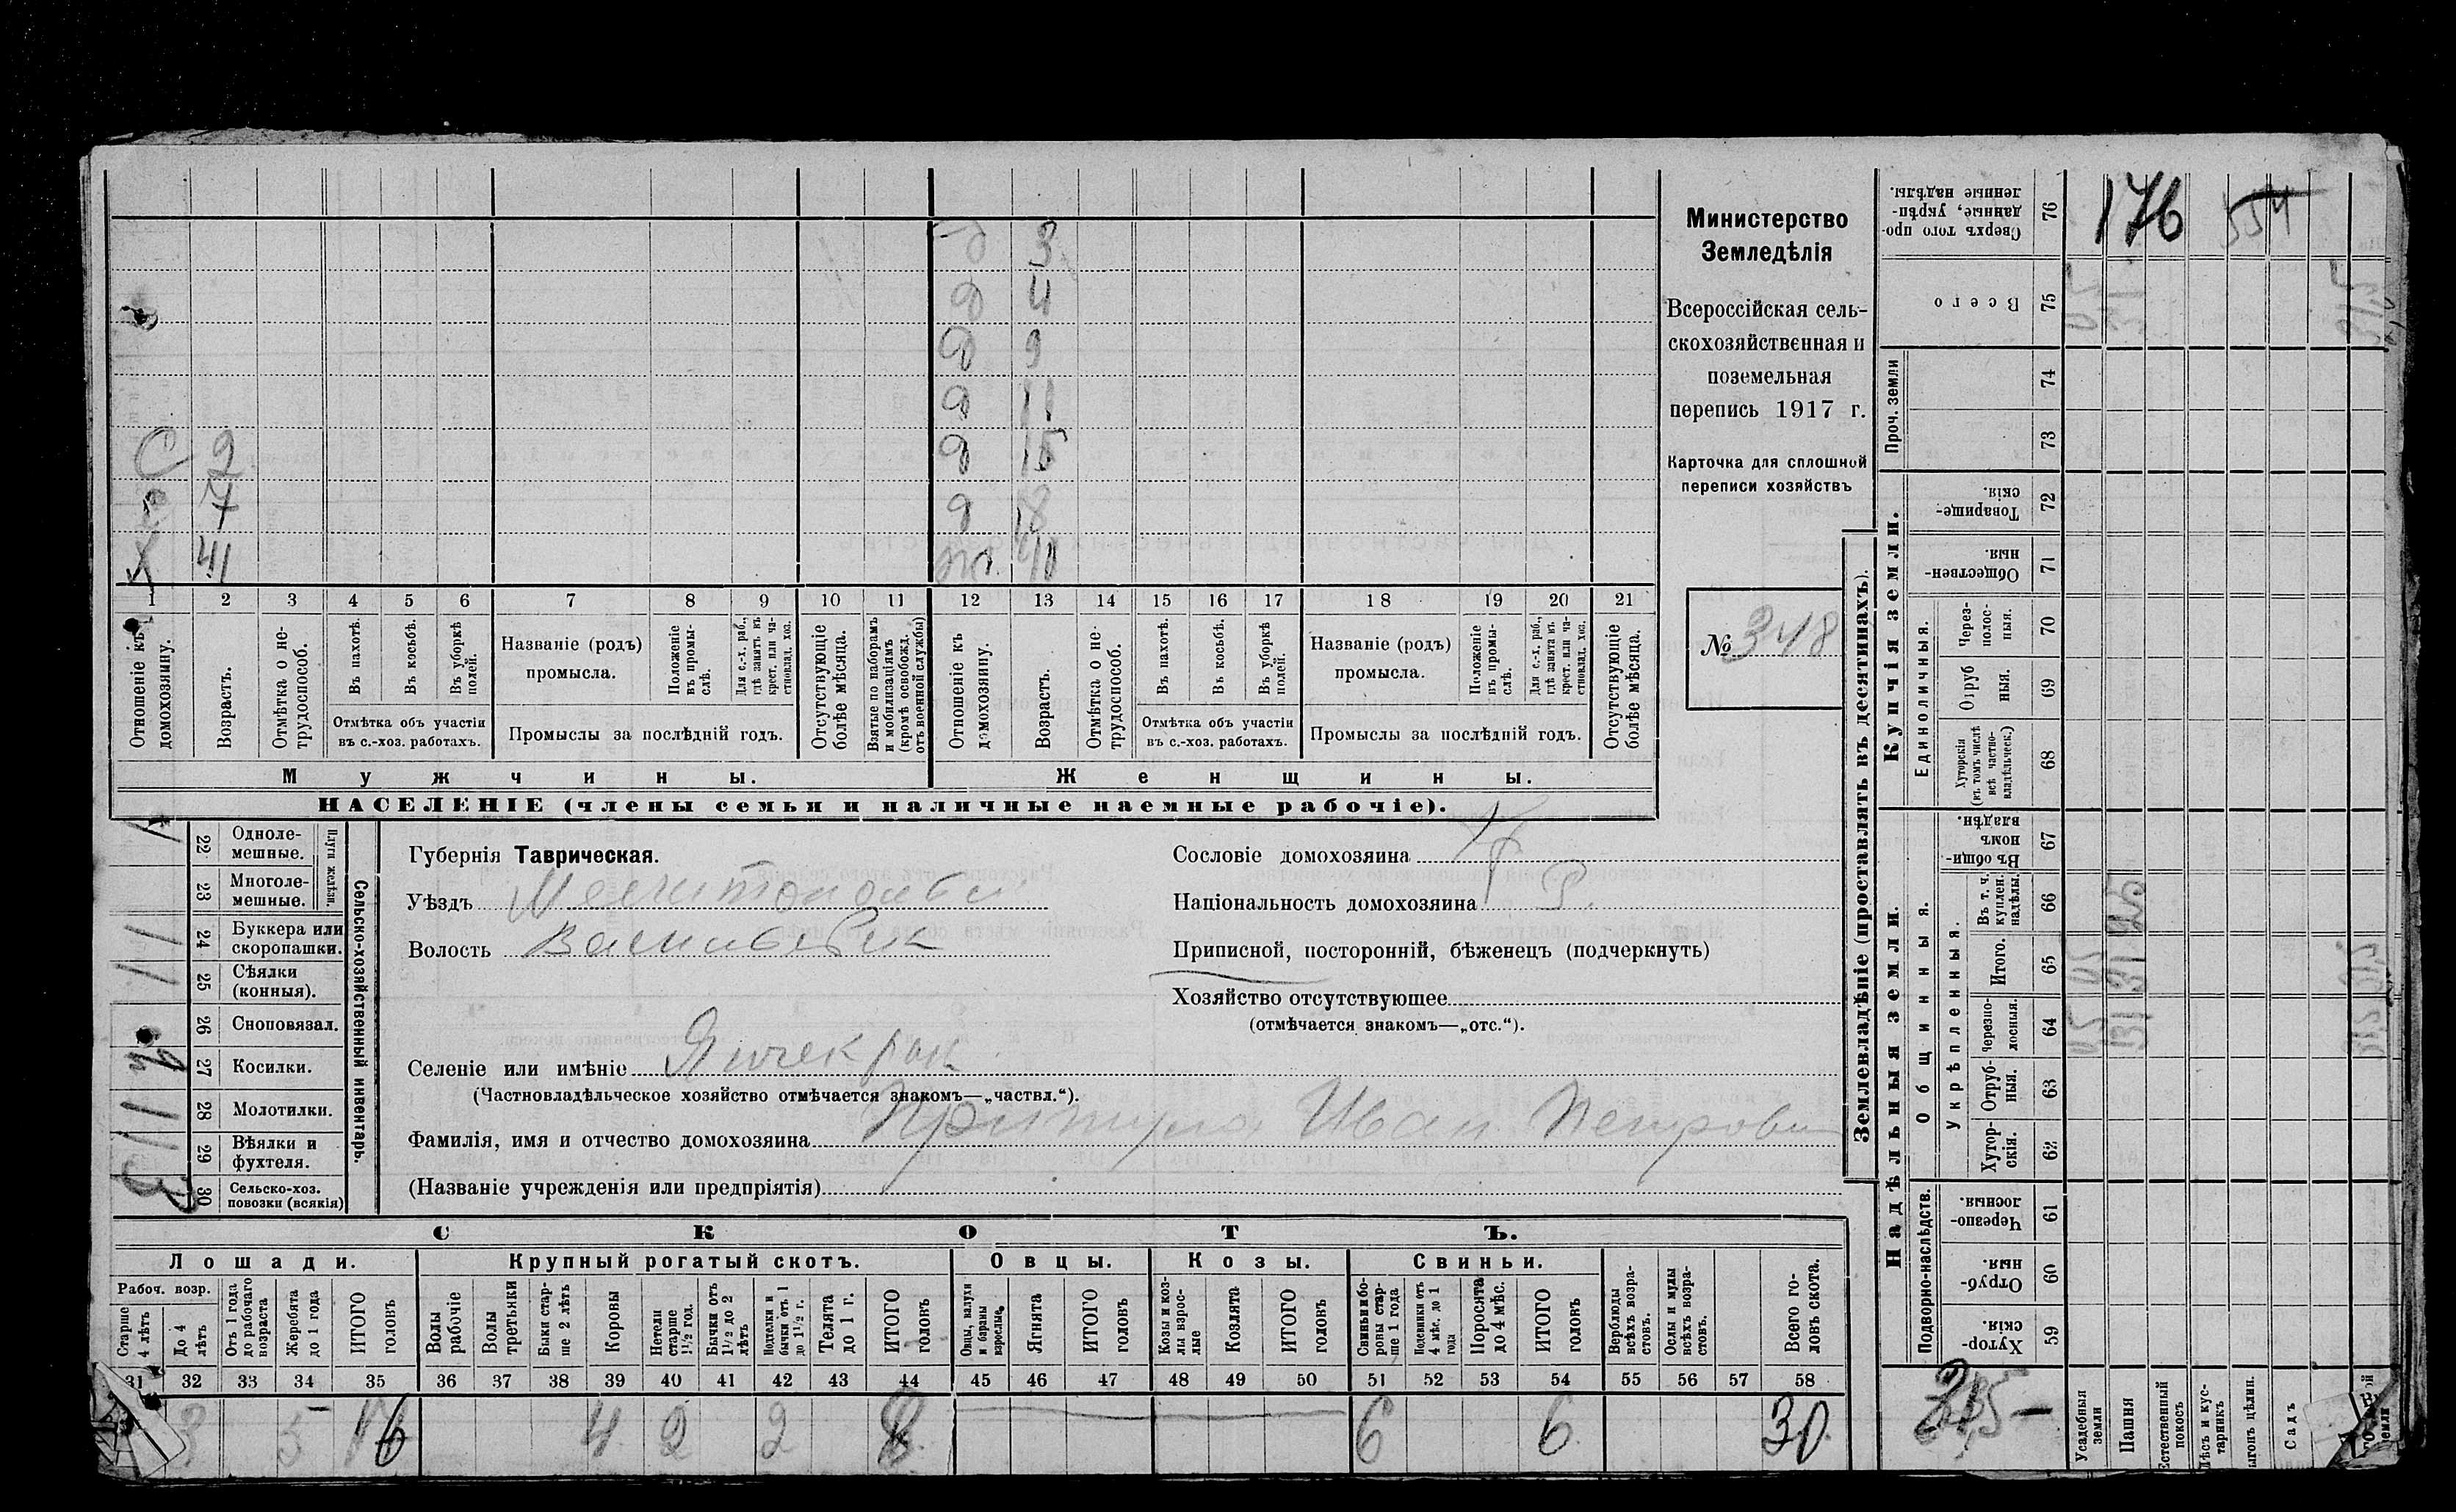 Министерство
Земледѣлія
Всероссійская сель-
скохозяйственная и
поземельная
перепись 1917 г.
Карточка для сплошной
переписи хозяйствъ
№ 348
д 3
д 4
д 9
д 11
С 2 д 15
с 7 д 18
Х 41 ж. 40
1 2 3 4 5 6 7 8 9 10 11 12 13 14 15 16 17 18 19 20 21
Отношеніе къ домохозяину.
Возрастъ.
Отмѣтка о не-
трудоспособ.
Въ пахотѣ.
Въ косьбѣ.
Въ уборкѣ
полей.
Отмѣтка объ участіи
въ с.-хоз. работахъ.
Названіе (родъ)
промысла.
Положеніе
въ промы-
слѣ.
Для с.-х. раб.,
гдѣ занятъ въ
крест. или ча-
стновлад. хоз.
Промыслы за послѣдній годъ.
Отсутствующіе
болѣе мѣсяца.
Взятые по наборамъ
и мобилизаціямъ
(кромѣ освобожд.
отъ военной службы)
Отношеніе къ
домохозяину.
Возрастъ.
Отмѣтка о не-
трудоспособ.
Въ пахотѣ.
Въ косьбѣ.
Въ уборкѣ
полей.
Отмѣтка объ участіи
въ с.-хоз. работахъ.
Названіе (родъ)
промысла.
Положеніе
въ промы-
слѣ.
Для с.-х. раб.,
гдѣ занята въ
крест. или ча-
стновлад. хоз.
Промыслы за послѣдній годъ.
Отсутствующіе
болѣе мѣсяца.
Мужчины.
Женщины.
НАСЕЛЕНІЕ (члены семьи и наличные наемные рабочіе).
Сельско-хозяйственный инвентарь.
Плуги желѣзн.
22 Одноле-
мешные.
23 Многоле-
мешные.
24 Буккера или
скоропашки.
25 Сѣялки
(конныя).
26 Сноповязал.
27 Косилки.
28 Молотилки.
29 Вѣялки и
фухтеля.
30 Сельско-хоз.
повозки (всякія)
Губернія Таврическая.
Уѣздъ
Волость
Селеніе или имѣніе Янчекрак
(Частновладѣльческое хозяйство отмѣчается знакомъ—„частвл.“).
Фамилія, имя и отчество домохозяина Притула Иван Петрович
(Названіе учрежденія или предпріятія)
Сословіе домохозяина
Національность домохозяина
Приписной, посторонній, бѣженецъ (подчеркнуть)
Хозяйство отсутствующее
(отмѣчается знакомъ—„отс.“).
СКОТЪ.
Лошади.
Крупный рогатый скотъ.
Овцы.
Козы.
Свиньи.
Рабоч. возр.
Старше
4 лѣтъ
До 4
лѣтъ
Отъ 1 года
до рабочаго
возраста
Жеребята
до 1 года
ИТОГО
головъ
Волы
рабочіе
Волы
третьяки
Быки стар-
ше 2 лѣтъ
Коровы
Нетели
старше
1½ год.
Бычки отъ
1½ до 2
лѣтъ
Подтелки и
бычки отъ 1
до 1½ г.
Телята
до 1 г.
ИТОГО
головъ
Овцы, валухи
и бараны
взрослые.
Ягнята
ИТОГО
головъ
Козы и коз-
лы взрос-
лые
Козлята
ИТОГО
головъ
Свиньи бо-
ровы стар-
ше 1 года
Подсвинки отъ
4 мѣс. до 1
года
Поросята
до 4 мѣс.
ИТОГО
головъ
Верблюды
всѣхъ возра-
стовъ.
Ослы и мулы
всѣхъ возра-
стовъ.
Всего го-
ловъ скота.
31 32 33 34 35 36 37 38 39 40 41 42 43 44 45 46 47 48 49 50 51 52 53 54 55 56 57 58
3 5 16 4 2 2 8 6 6 30
Землевладѣніе (проставлять въ десятинахъ).
Купчія земли.
Надѣльныя земли.
Сверхъ того про-
данные, укрѣп-
ленные надѣлы. 76
Всего 75
Проч. земли
74
73
Товарище-
скія. 72
Обществен-
ныя 71
Единоличныя.
Через-
полос-
ныя. 70
Отруб
ныя. 69
Хуторскія
(въ томъ числѣ
всѣ частно-
владѣльческ.) 68
Общинныя.
Въ общи-
номъ
владѣн. 67
Укрѣпленныя.
Въ т. ч.
куплен.
надѣлы. 66
Итого. 65
Черезпо-
лосныя. 64
Отруб-
ныя. 63
Хутор-
скія. 62
Подворно-наслѣдств.
Черезпо-
лосныя 61
Отруб-
ныя 60
Хутор-
скія. 59
Усадебныя
земли
Пашня
Естественный
покосъ
Лѣсъ и кус-
тарникъ
Садъ
176
554